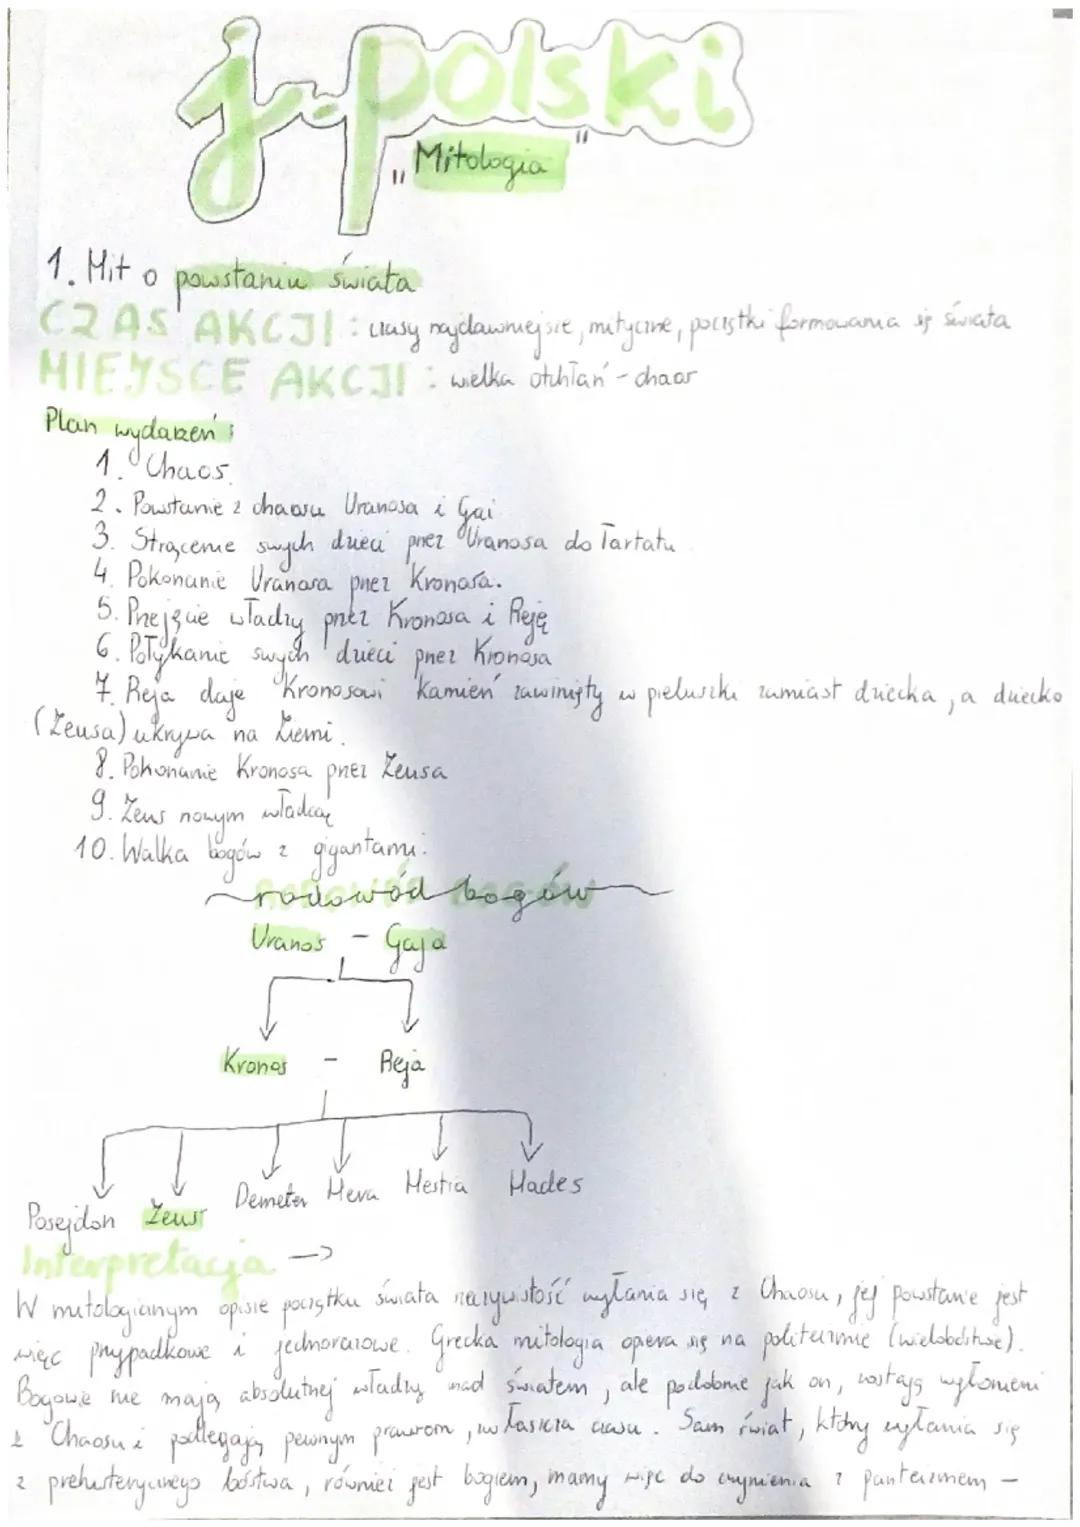 j. polski
"Mitologia"
1. Mit o powstaniu świata
CZAS AKCJI : czasy najdawniejsze, mityczne, początki formowania się świata
MIEJSCE AKCJI : wielka otchłań - chaos
Plan wydarzeń :
1. Chaos.
2. Powstanie z chaosu Uranosa i Gai
3. Strącenie swych dzieci przez Uranosa do Tartatu.
4. Pokonanie Uranosa przez Kronosa.
5. Przejęcie władzy przez Kronosa i Reję
6. Połykanie swych dzieci przez Kronosa
7. Reja daje Kronosowi kamień zawinięty w pieluszki zamiast dziecka, a dziecko
(Zeusa) ukrywa na Ziemi.
8. Pokonanie Kronosa przez Zeusa
9. Zeus nowym władcą
10. Walka bogów z gigantami.
rodowód bogów
Uranos - Gaja
Kronos - Reja
Posejdon Zeus Demeter Hera Hestia Hades
Interpretacja ->
W mitologicznym opisie początku świata rzeczywistość wyłania się z Chaosu, jej powstanie jest
więc przypadkowe i jednorazowe. Grecka mitologia opiera się na politeizmie (wielobóstwie).
Bogowie nie mają absolutnej władzy nad światem, ale podobnie jak on, zostają wyłonieni
z Chaosu i podlegają pewnym prawom, zwłaszcza czasu. Sam świat, który wyłania się
z prehisterycznego bóstwa, również jest bogiem, mamy więc do czynienia z panteizmem -